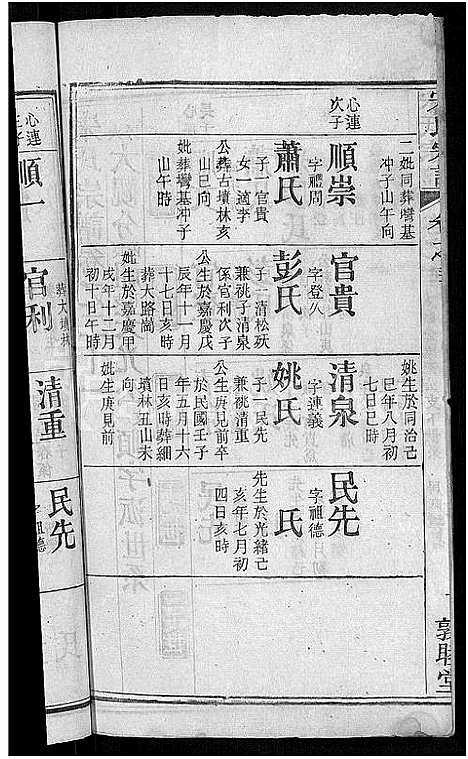 二妣同葬壪基
冲子山午向
妣生於同治己
巳年八月初
七日巳時
心連
次子
順崇
字禮周
官貴
字登久
清泉
字連義
民先
字祖德
蕭氏
子一官貴
女一適李
公葬古墳林亥
山巳向
妣葬壪基冲子
山午時
彭氏
子一清松殀
兼祧子清泉
係官利次子
公生於嘉慶戊
辰年十一月
十七日亥時
葬大路崗
妣生於嘉慶甲
戌年十二月
初十日午時
姚氏
子一民先
兼祧清重
公生庚見前卒
於民國壬子
年五月十六
日亥時葬細
墳林丑山未
向
妣生庚見前
氏
先生於光緒己
亥年七月初
四日亥時
敦睦堂
心連
順一
官利
清重
民先
字祖德